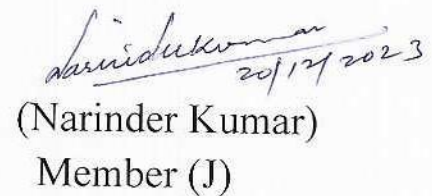 Narinder Kumar
20/12/2023
(Narinder Kumar)
Member (J)